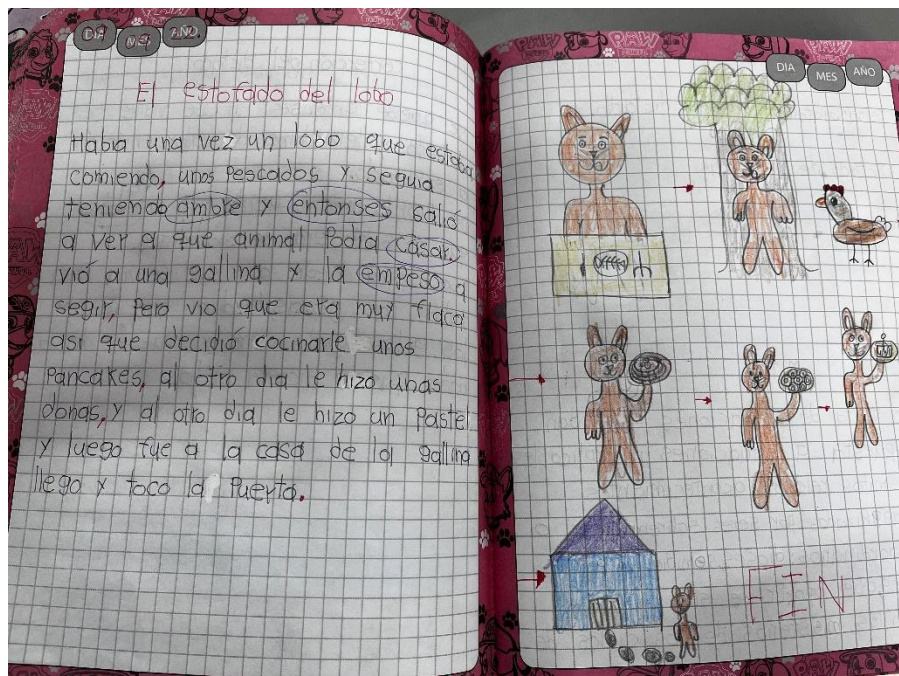 DIA MES AÑO
El estofado del lobo
Había una vez un lobo que estaba
comiendo, unos Pescados y seguia
teniendo ambre y entonses salió
a ver a que animal Podia casar.
vió a una gallina y la empeso a
segir, Pero vio que era muy flaca
asi que decidió cocinarle unos
Pancakes, al otro dia le hizo unas
donas, y al otro dia le hizo un Pastel
y luego fue a la casa de la gallina
llego y toco la Puerta.
PAW
DIA MES AÑO
FIN